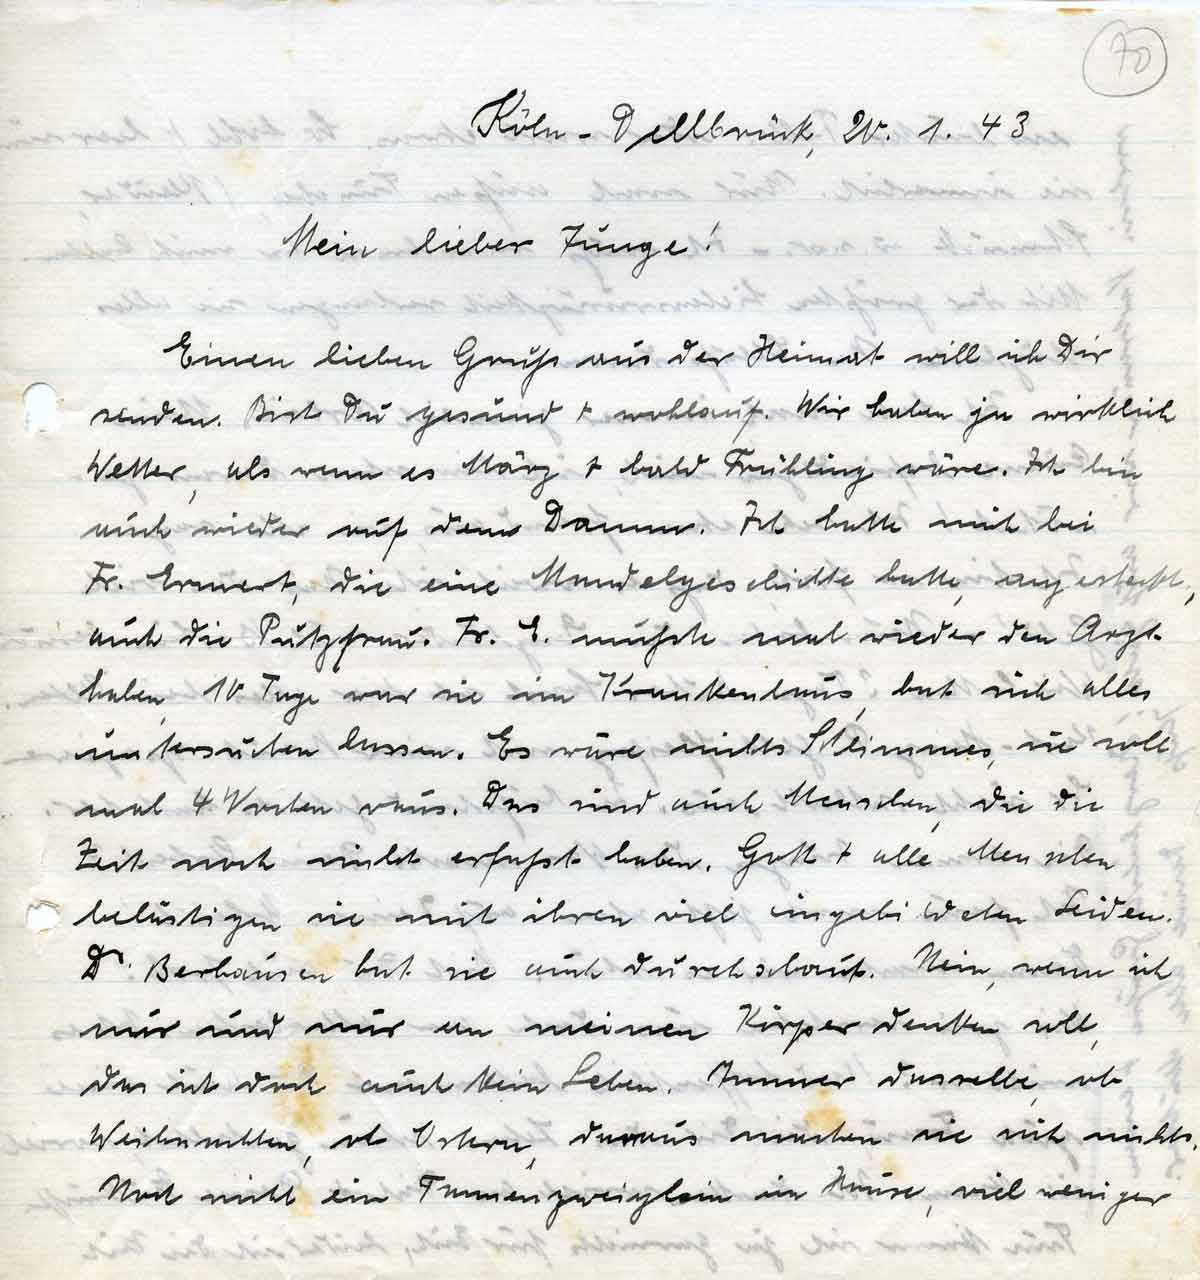 70
Köln-Dellbrück, 20. 1. 43
Mein lieber Junge!
Einen lieben Gruß aus der Heimat will ich Dir
senden. Bist Du gesund + wohlauf. Wir haben ja wirklich
Wetter, als wenn es März + bald Frühling wäre. Ich bin
auch wieder auf dem Damm. Ich hatte mich bei
Fr. Ermert, die eine Mandelgeschichte hatte, angesteckt,
auch die Putzfrau. Fr. E. mußte mal wieder den Arzt
haben, 10 Tage war sie im Krankenhaus, hat sich alles
untersuchen lassen. Es wäre nichts Schlimmes, sie soll
mal 4 Wochen raus. Das sind auch Menschen, die die
Zeit noch nicht erfaßt haben. Gott + alle Menschen
belästigen sie mit ihren viel eingebildeten Leiden.
Dr. Berhausen hat sie auch durchschaut. Nein, wenn ich
nur und nur an meinen Körper denken soll,
das ist doch auch kein Leben. Immer dasselbe, ob
Weihnachten, ob Ostern, daraus machen sie sich nichts.
Noch nicht ein Tannenzweiglein im Hause, viel weniger